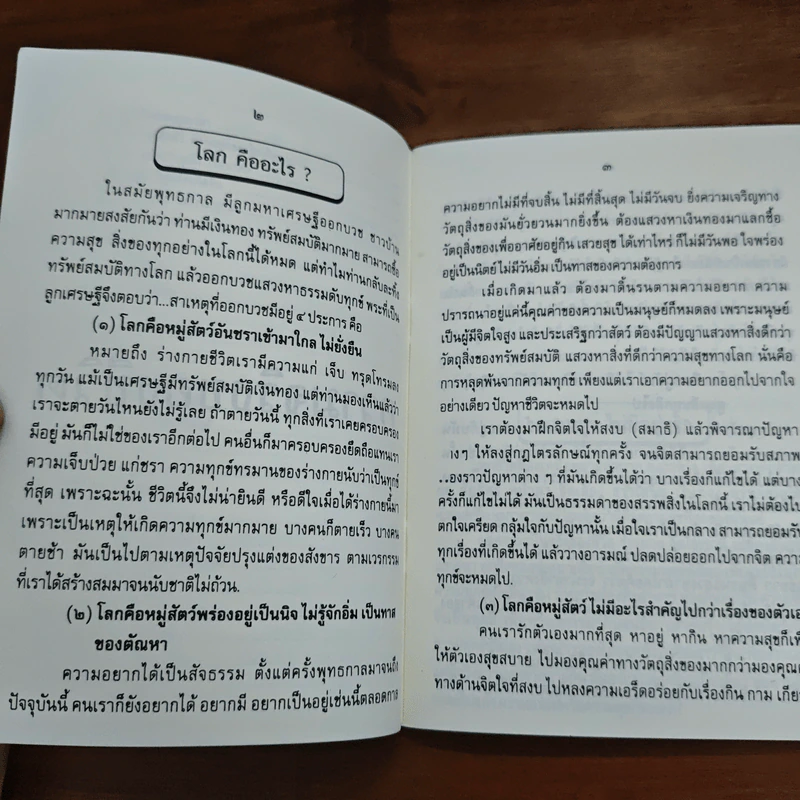 ๒
โลก คืออะไร ?
ในสมัยพุทธกาล มีลูกมหาเศรษฐีออกบวช ชาวบ้าน
มากมายสงสัยกันว่า ท่านมีเงินทอง ทรัพย์สมบัติมากมาย สามารถซื้อ
ความสุข สิ่งของทุกอย่างในโลกนี้ได้หมด แต่ทำไมท่านกลับละทิ้ง
ทรัพย์สมบัติทางโลก แล้วออกบวชแสวงหาธรรมดับทุกข์ พระที่เป็น
ลูกเศรษฐีจึงตอบว่า...สาเหตุที่ออกบวชมีอยู่ ๔ ประการ คือ
(๑) โลกคือหมู่สัตว์อันชราเข้ามาใกล ไม่ยั่งยืน
หมายถึง ร่างกายชีวิตเรามีความแก่ เจ็บ ทรุดโทรมลง
ทุกวัน แม้เป็นเศรษฐีมีทรัพย์สมบัติเงินทอง แต่ท่านมองเห็นแล้วว่า
เราจะตายวันไหนยังไม่รู้เลย ถ้าตายวันนี้ ทุกสิ่งที่เราเคยครอบครอง
มีอยู่ มันก็ไม่ใช่ของเราอีกต่อไป คนอื่นก็มาครอบครองยึดถือแทนเรา
ความเจ็บป่วย แก่ชรา ความทุกข์ทรมานของร่างกายนับว่าเป็นทุกข์
ที่สุด เพราะฉะนั้น ชีวิตนี้จึงไม่น่ายินดี หรือดีใจเมื่อได้ร่างกายนี้มา
เพราะเป็นเหตุให้เกิดความทุกข์มากมาย บางคนก็ตายเร็ว บางคน
ตายช้า มันเป็นไปตามเหตุปัจจัยปรุงแต่งของสังขาร ตามเวรกรรม
ที่เราได้สร้างสมมาจนนับชาติไม่ถ้วน.
(๒) โลกคือหมู่สัตว์พร่องอยู่เป็นนิจ ไม่รู้จักอิ่ม เป็นทาส
ของตัณหา
ความอยากได้เป็นสัจธรรม ตั้งแต่ครั้งพุทธกาลมาจนถึง
ปัจจุบันนี้ คนเราก็ยังอยากได้ อยากมี อยากเป็นอยู่เช่นนี้ตลอดกาล
๓
ความอยากไม่มีที่จบสิ้น ไม่มีที่สิ้นสุด ไม่มีวันจบ ยิ่งความเจริญทาง
วัตถุสิ่งของมันยั่วยวนมากยิ่งขึ้น ต้องแสวงหาเงินทองมาแลกซื้อ
วัตถุสิ่งของเพื่ออาศัยอยู่กิน เสวยสุข ได้เท่าไหร่ ก็ไม่มีวันพอ ใจพร่อง
อยู่เป็นนิตย์ ไม่มีวันอิ่ม เป็นทาสของความต้องการ
เมื่อเกิดมาแล้ว ต้องมาดิ้นรนตามความอยาก ความ
ปรารถนาอยู่แค่นี้คุณค่าของความเป็นมนุษย์ก็หมดลง เพราะมนุษย์
เป็นผู้มีจิตใจสูง และประเสริฐกว่าสัตว์ ต้องมีปัญญาแสวงหาสิ่งดีกว่า
วัตถุสิ่งของทรัพย์สมบัติ แสวงหาสิ่งที่ดีกว่าความสุขทางโลก นั่นคือ
การหลุดพ้นจากความทุกข์ เพียงแต่เราเอาความอยากออกไปจากใจ
อย่างเดียว ปัญหาชีวิตจะหมดไป
เราต้องมาฝึกจิตใจให้สงบ (สมาธิ) แล้วพิจารณาปัญหา
างๆ ให้ลงสู่กฎไตรลักษณ์ทุกครั้ง จนจิตสามารถยอมรับสภาพ
องราวปัญหาต่าง ๆ ที่มันเกิดขึ้นได้ว่า บางเรื่องก็แก้ไขได้ แต่บาง
ครั้งก็แก้ไขไม่ได้ มันเป็นธรรมดาของสรรพสิ่งในโลกนี้ เราไม่ต้องไป
ตกใจเครียด กลุ้มใจกับปัญหานั้น เมื่อใจเราเป็นกลาง สามารถยอมรับ
ทุกเรื่องที่เกิดขึ้นได้ แล้ววางอารมณ์ ปลดปล่อยออกไปจากจิต ความ
ทุกข์จะหมดไป.
(๓) โลกคือหมู่สัตว์ ไม่มีอะไรสำคัญไปกว่าเรื่องของตัวเอ
คนเรารักตัวเองมากที่สุด หาอยู่ หากิน หาความสุขก็เพื่
ให้ตัวเองสุขสบาย ไปมองคุณค่าทางวัตถุสิ่งของมากกว่ามองคุณค
ทางด้านจิตใจที่สงบ ไปหลงความเอร็ดอร่อยกับเรื่องกิน กาม เกีย